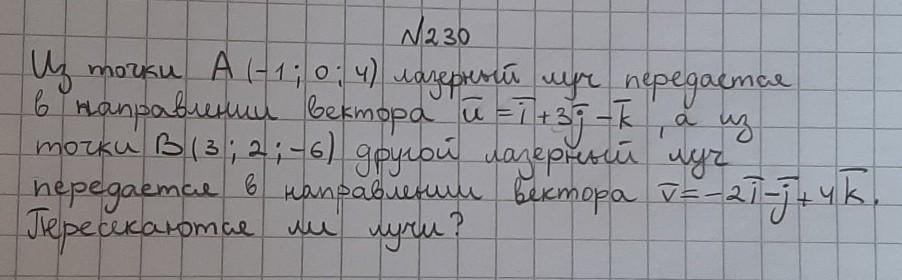 №230
Из точки A(-1; 0; 4) лазерный луч передается
в направлении вектора u̅ = i̅ + 3j̅ - k̅, а из
точки B(3; 2; -6) другой лазерный луч
передается в направлении вектора v̅ = -2i̅ - j̅ + 4k̅.
Пересекаются ли лучи?